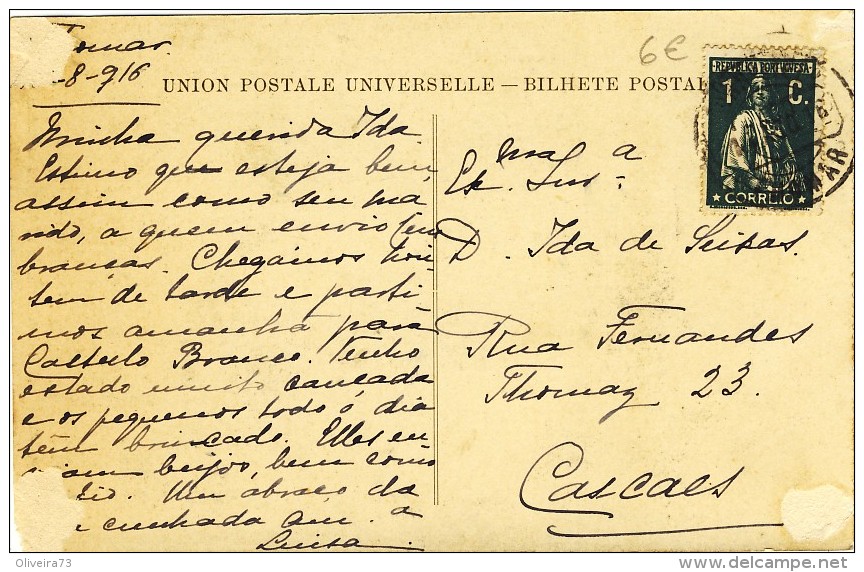 Tomar
-8-916
6€
UNION POSTALE UNIVERSELLE — BILHETE POSTA
REPUBLICA PORTUGUESA
1 C.
CORREIO
MAR
Minha querida Ida
Estimo que esteja bem,
assim como seu ma
rido, a quem envio lem
branças. Chegámos hon
tem de tarde e parti
mos amanhã para
Castello Branco. Tenho
estado muito cançada
e os pequenos todo o dia
têm brincado. Elles en
viam beijos, bem como
Um abraço da
cunhada am.ª
Luisa
Exma Snra
D. Ida de Seixas.
Rua Fernandes
Thomaz 23.
Cascaes
Oliveira73
delcampe.net